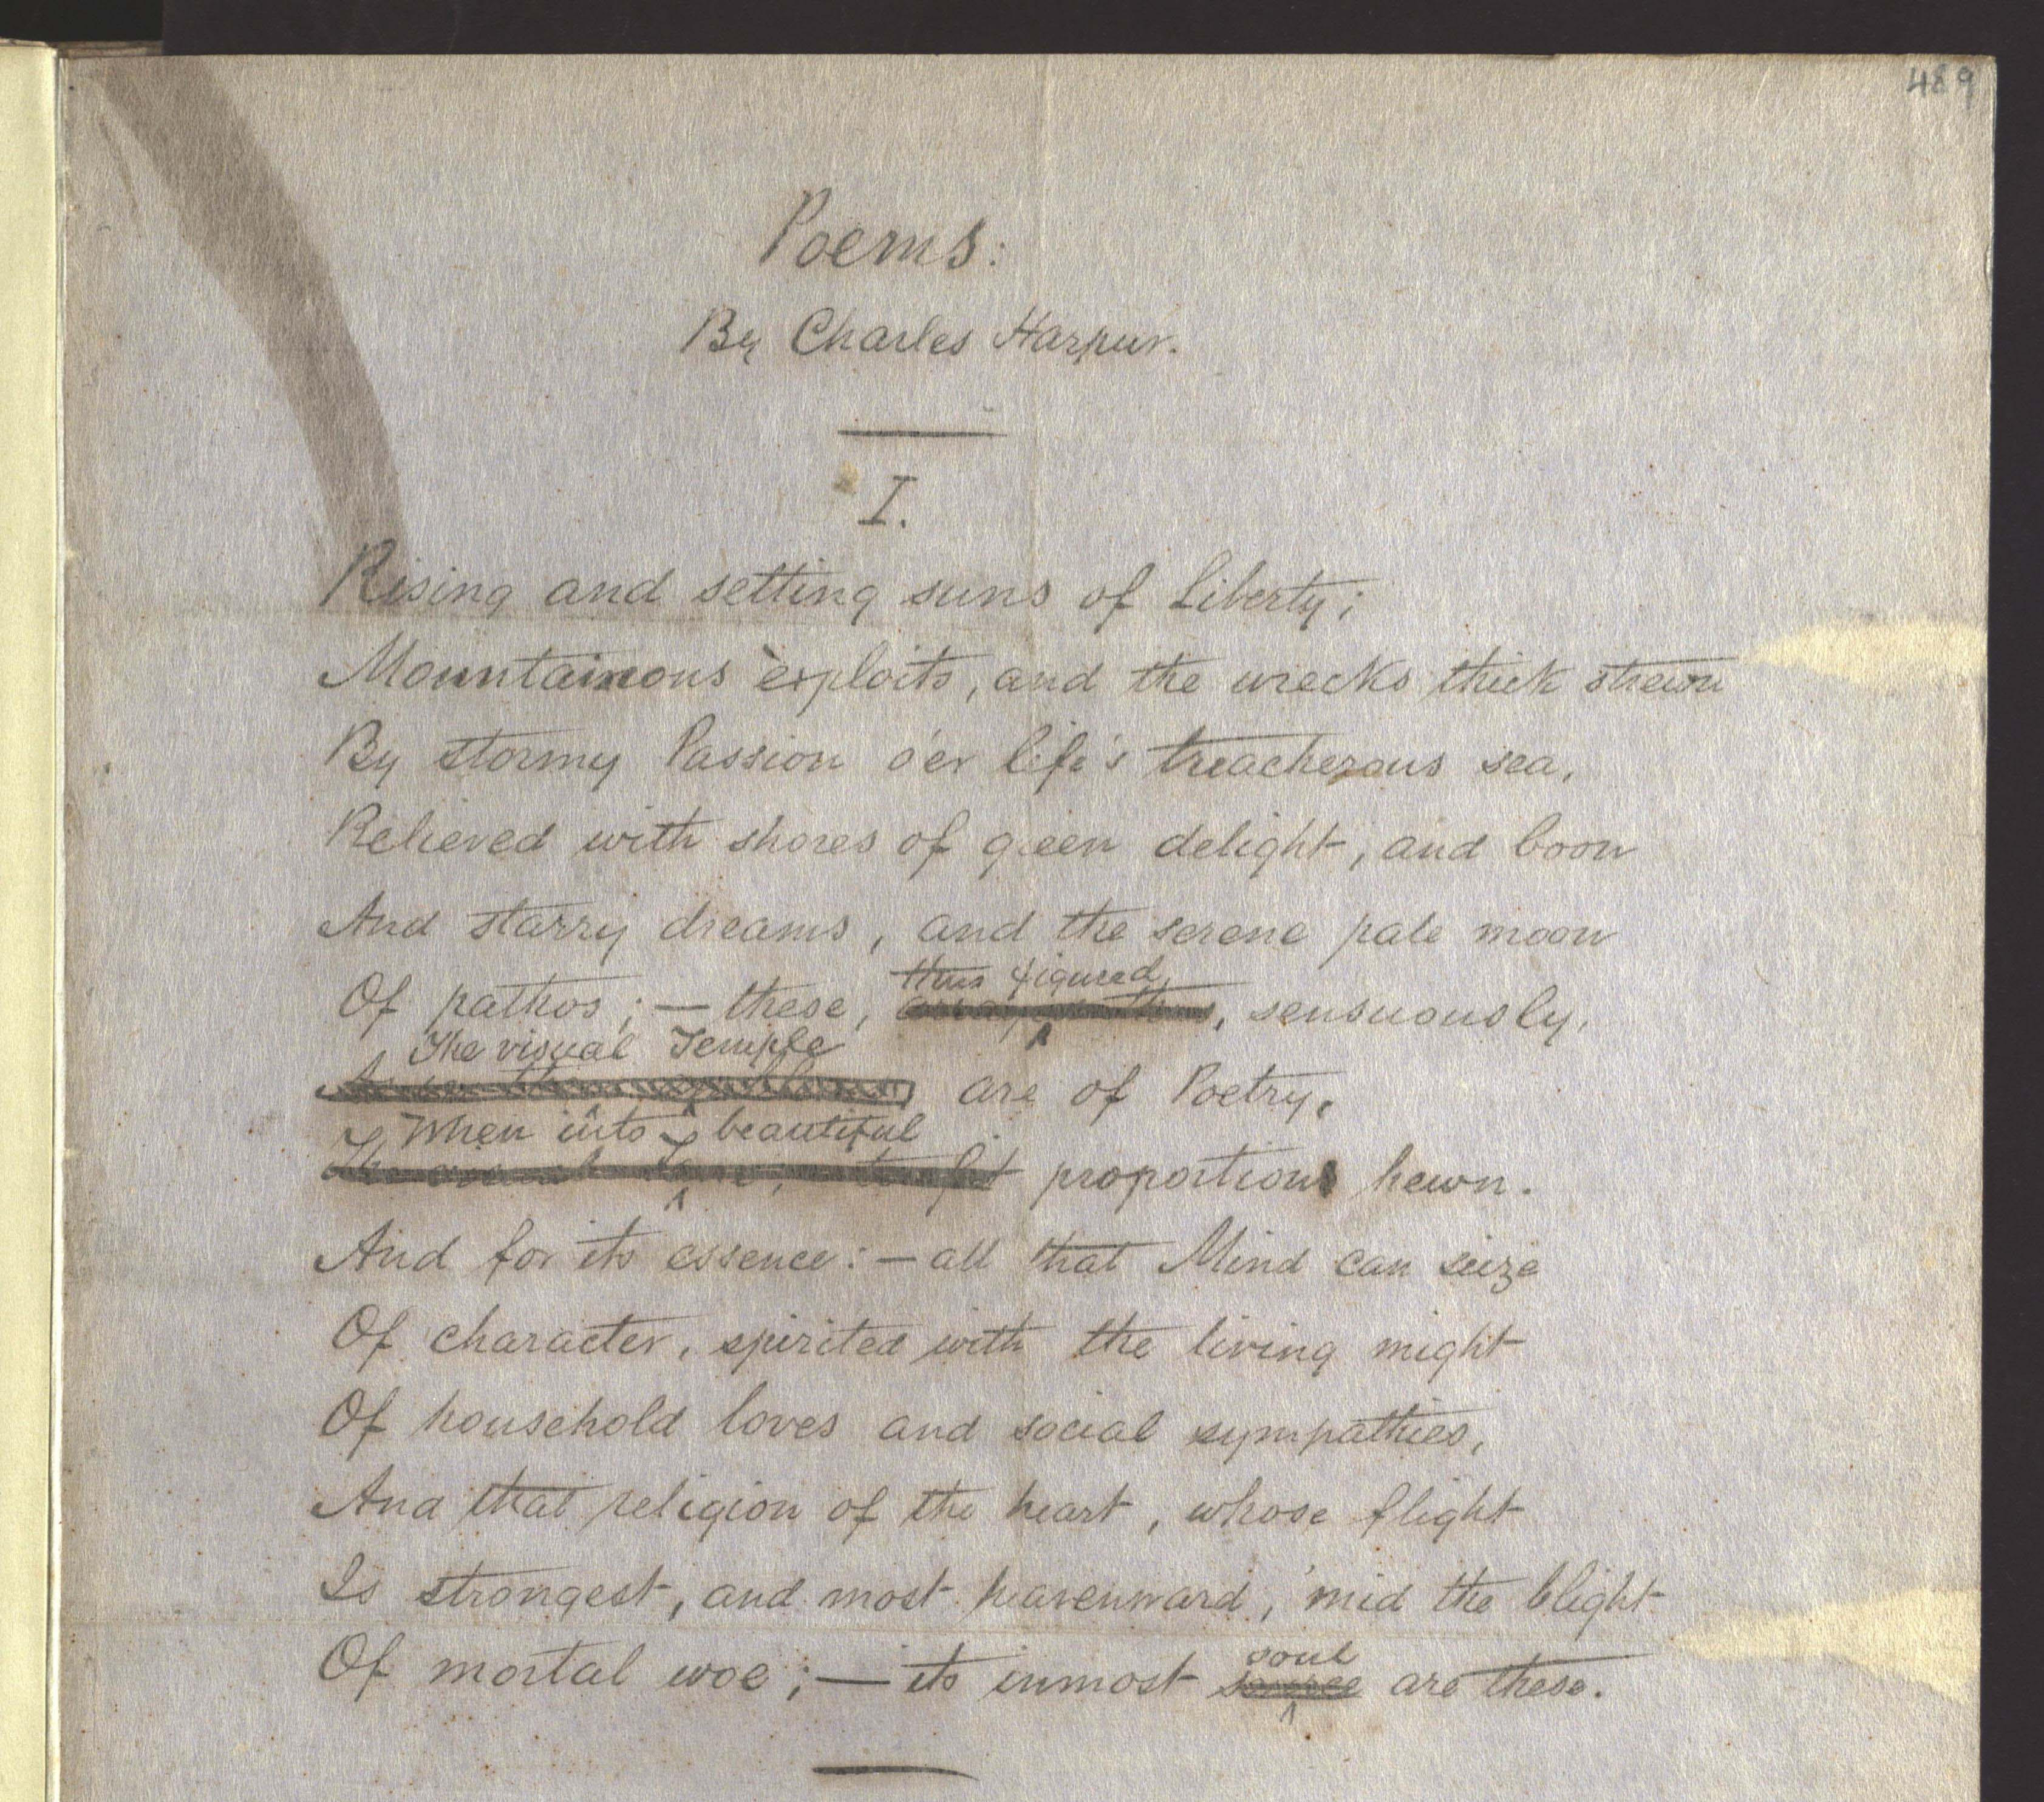 489
Poems:
By Charles Harpur.
I.
Rising and setting suns of Liberty;
Mountainous exploits, and the wrecks thick strewn
By stormy Passion o'er life's treacherous sea,
Relieved with shores of green delight, and boon
And starry dreams, and the serene pale moon
thus figured,
Of pathos; — these, sensuously,
The visual Temple
are of Poetry,
When into beautiful
proportions hewn.
And for its essence: — all that Mind can seize
Of character, spirited with the living might
Of household loves and social sympathies,
And that religion of the heart, whose flight
Is strongest, and most heavenward, 'mid the blight
soul
Of mortal woe; — its inmost are these.